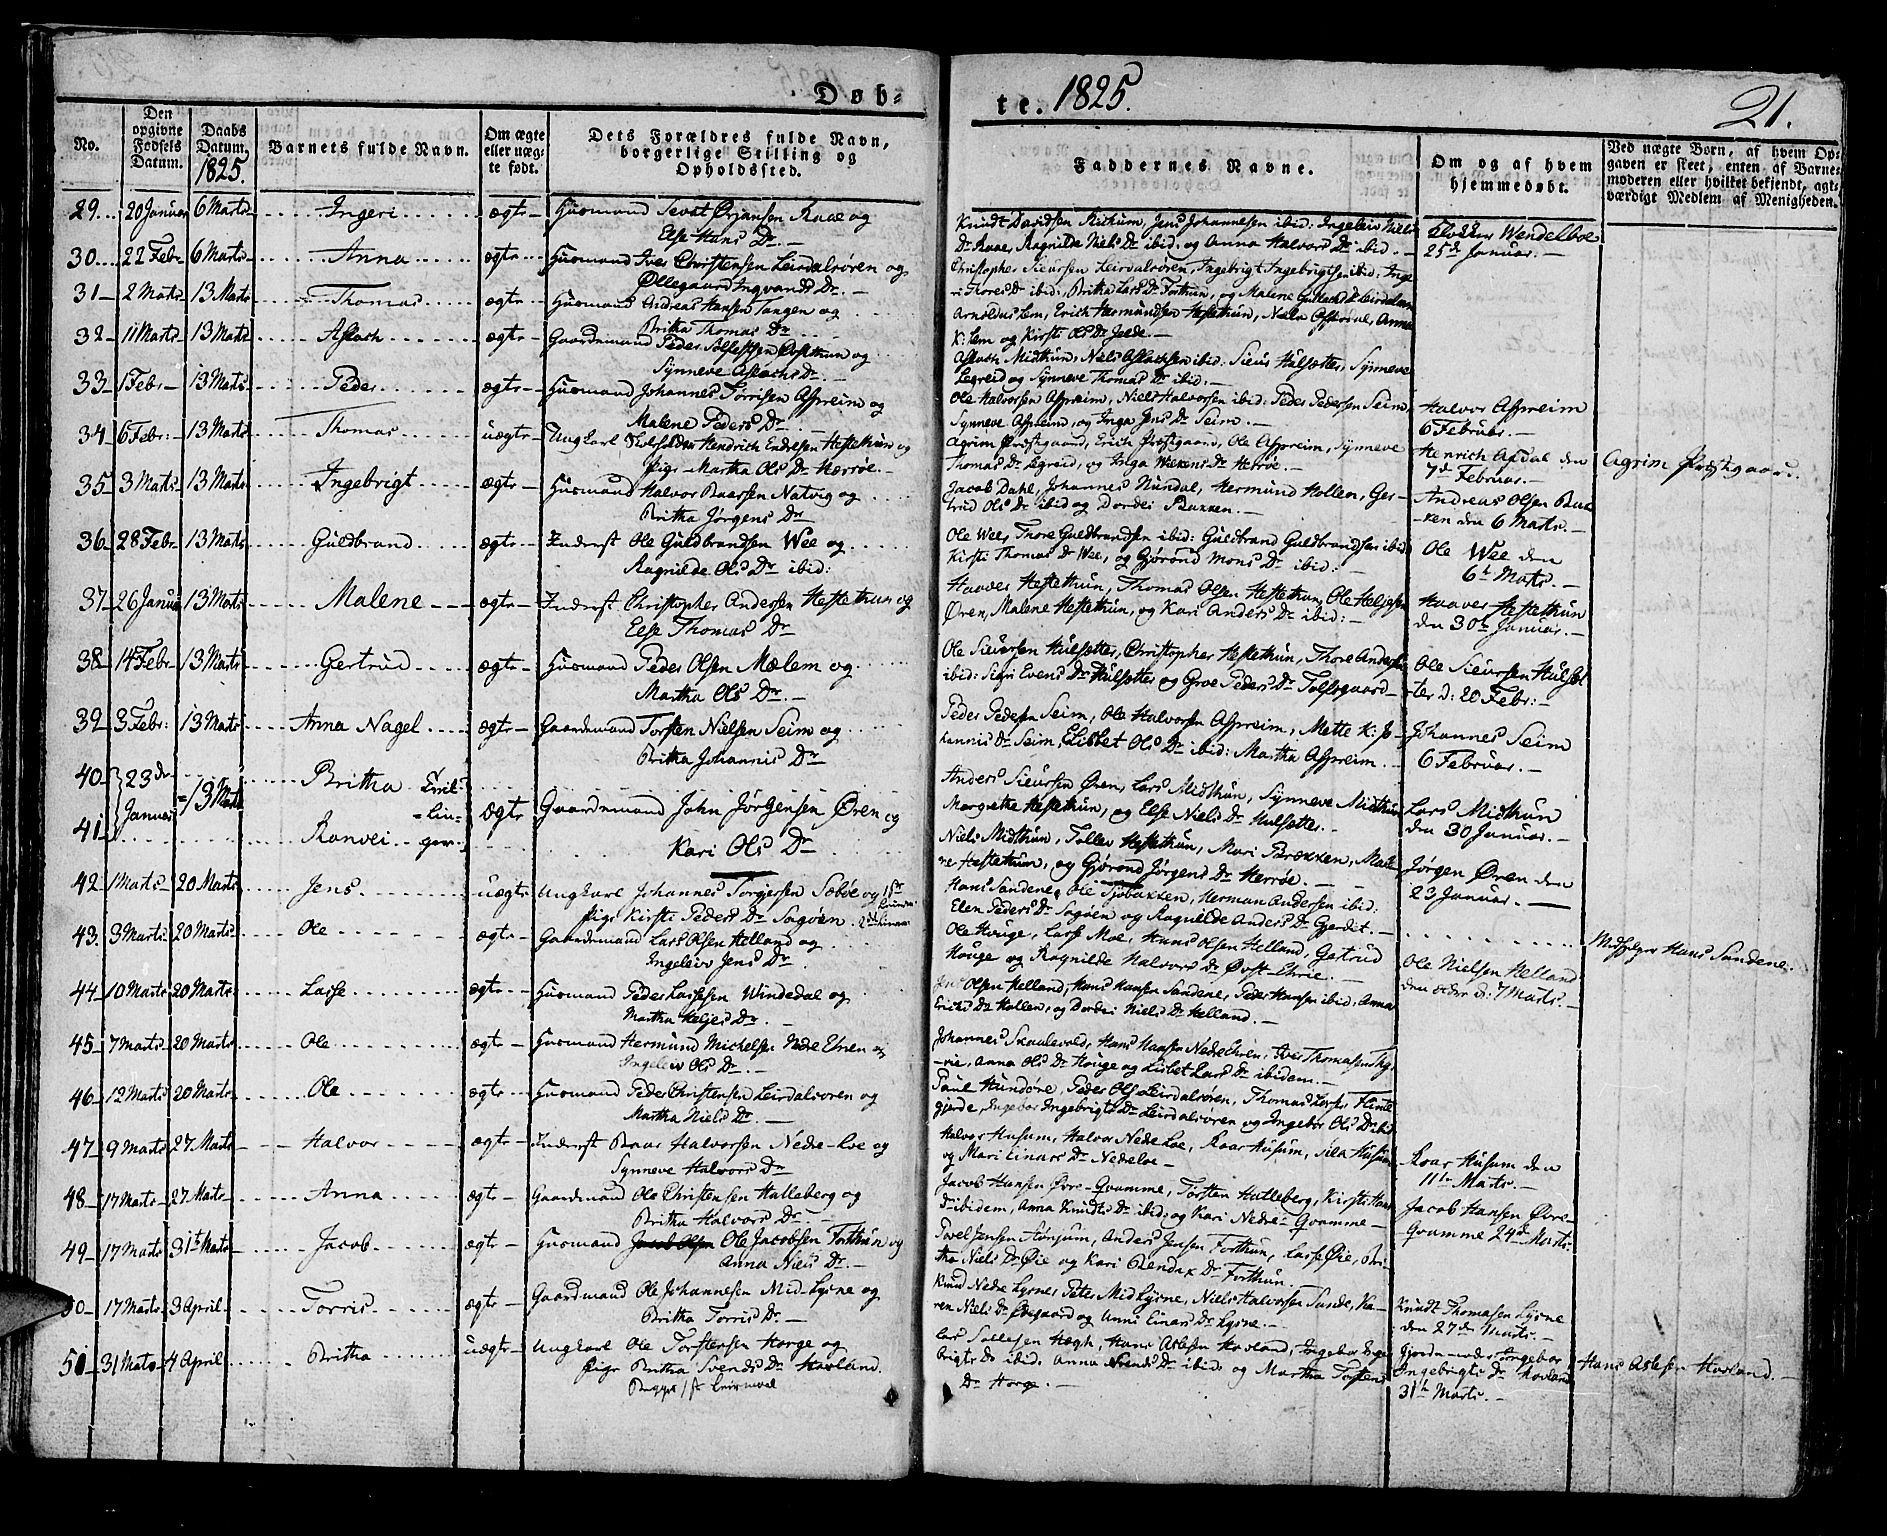 Døb-
te. 1825.
21.
No. Den opgivne Fødsels Datum. Daabs Datum. 1825. Barnets fulde Navn. Om ægte eller uægte født. Dets Forældres fulde Navn, borgerlige Stilling og Opholdssted. Faddernes Navne. Om og af hvem hjemmedøbt. Ved uægte Børn, af hvem Opgaven er skeet, enten af Barnemoderen eller hvilket bekjendt, agtværdigt Medlem af Menigheden.
29. 20 Januar 6 Marts Ingeri ægte Huusmand Ørjansen Raae og
Else Hans Dr.
Knudt Davidsen, Jens Johannesen ibid: Ingeleiv Niels
Dr. Raae, Ragnilde Niels Dr. ibid: og Anna Halvors Dr. ibid.
Klokker Wendelboe
25de Januar.
30. 22 Febr. 6 Marts Anna ægte Huusmand Iver Christensen Leirdalsøren og
Øllegaard Ingvands Dr.
Christopher Sieursen Leirdalsøren, Ingebrigt Ingebrigtsen ibid: Inge-
ri Thores Dr. ibid, Britha Lars Dr. Forthun, og Malene
31 2 Marts 13 Marts Thomas ægte Huusmand Andreas Hansen Tangen og
Britha Thomas Dr.
Arnoldus Lem, Erich Hermundsen Hestethun, Anna
K: Lem og Kirsti Ols Dr.
32 11 Marts 13 Marts Aslach ægte Gaardemand Peder og
Synneve Aslachs Dr.
Aslach Midthun, Niels Aslachsen ibid: Sieur Hulsætter, Synneve
Legreid og Synneve Thomas Dr. ibid.
33 1 Febr. 13 Marts Peder ægte Huusmand Johannes Torrisen Aspreim og
Malene Peders Dr.
Ole Halvorsen Aspreim, Niels Halvorsen ibid: Peder Pedersen Seim,
Synneve Aspreim, og Inga Jens Dr. Seim.
Halvor Aspreim
6 Februar.
34 6 Febr: 13 Marts Thomas uægte Ungkarl Hendrich Endresen Hestethun og
Pige Martha Ols Dr. Herrøe.
Agrim Præstgaard, Erich Præstgaard, Ole Aspreim, Synneve
Thomas Dr. Legreid, og Inga Dr. Herrøe.
Henrich Afdal den
7de Februar.
Agrim Præstgaard
35 3 Marts 13 Marts Ingebrigt ægte Huusmand Halvor Baarsen Natvig og
Britha Jørgens Dr.
Jacob Dahl, Johannes Nundal, Hermund Hollen, Ger-
trud Ols Dr. ibid og Dordei Bakken.
Andreas Olsen Bak-
ken den 6 Marts.
36 28 Febr. 13 Marts Guldbrand ægte Inderst Ole Guldbrandsen Wee og
Ragnilde Ols Dr. ibid:
Ole Wee, Thore Guldbrandsen ibid: Guldbrand Guldbrandsen ibid
Kirsti Thomas Dr. Wee, og Gjørond Mons Dr. ibid:
Ole Wee den
6te Marts.
37 26 Januar 13 Marts Malene ægte Inderst Christopher Andersen Hestethun og
Else Thomas Dr
Haaver Hestethun, Thomas Olsen Hestethun, Ole Heljesen
Øren, Malene Hestethun, og Kari Anders Dr. ibid:
Haaver Hestethun
den 30te Januar.
38 14 Febr. 13 Marts Gertrud ægte Huusmand Peder Olsen Mælem og
Martha Ols Dr.
Ole Sieursen Hulsætter, Christopher Hestethun, Thore Andersen
ibid: Sigri Evens Dr. Hulsætter og Groe Peders Dr.
Ole Sieursen Hulsæt-
ter d: 20 Febr:
39 3 Febr: 13 Marts Anna Nagel ægte Gaardemand Torsten Nielsen Seim og
Britha Johannis Dr
Peder Pedersen Seim, Ole Halvorsen Aspreim, Mette K: Jo-
hannis Dr. Seim, Lisbet Ols Dr. ibid: Martha Aspreim.
Johannes Seim
6 Februar.
40 23de Januar 13 Marts Britha Tvil-
lin-
ger
41 Ranvei
ægte Gaardemand John Jørgensen Øren og
Kari Ols Dr
Anders Sieursen Øren, Lars Midthun, Synneve Midthun
Margrethe Hestethun, og Else Niels Dr. Hulsætter.
Lars Midthun
den 30 Januar.
Niels Midthun, Tollev Hestethun, Mari Brækken, Male-
ne Hestethun, og Gjørond Jørgens Dr. Herrøe.
Jørgen Øren den
23 Januar.
42 1 Marts 20 Marts Jens uægte Ungkarl Johannes Torgersen Sæbøe og
Pige Kirsti Peders Dr. Sogøen
Hans Sandene, Ole, Herman Andersen ibid:
Elen Peders Dr. Sogøen og Ragnilde Anders Dr. Gjerdet.
Medfølger Hans Sandene.
43. 3 Marts 20 Marts Ole ægte Gaardemand Lars Olsen Helland og
Ingeleiv Jens Dr.
Ole Houge, Lasse Moe, Hans Olsen Helland, Gertrud
Houge og Ragnilde Halvors Dr. Øvst-Ehrie.
Ole Nielsen Helland
den ældre d: 7 Marts.
44 10 Marts 20 Marts Lasse ægte Huusmand Peder Lassesen Windedal og
Martha Heljes Dr.
Olsen Helland, Hans Hansen Sandene, Peder Hansen ibid: Anna
Erichs Dr. Hollen, og Dordei Niels Dr. Helland.
45 7 Marts 20 Marts Ole ægte Huusmand Hermund Michelsen Nedre Ehren og
Ingeleiv Ols Dr.
Johannes Skaalevold, Hans Hansen Nedre Ehren, Iver Thomasen
Anna Ols Dr. Houge og Lisbet Lars Dr. ibidem.
46 12 Marts 20 Marts Ole ægte Huusmand Peder Christensen Leirdalsøren og
Martha Niels Dr.
Paul Hundøre, Peder Ols. Leirdalsøren, Thomas
gjerde, Ingebor Ingebrigts Dr. Leirdalsøren og Ingebor Ols Dr. ibid
47 9 Marts 27 Marts Halvor ægte Inderst Baar Halvorsen Nedre-Loe og
Synneve Halvors Dr
Halvor Husum, Halvor Nedre Loe, Roar Husum, Sila Husum
og Mari Einars Dr. Nedreloe
Roar Husum den
11te Marts.
48 17 Marts 27 Marts Anna ægte Gaardmand Ole Christensen Halleberg og
Britha Halvors Dr
Jacob Hansen Øvre-Qvamme, Torsten Halleberg, Kirsti Hans
Dr. ibidem, Anna Knudts Dr. ibid: og Kari Nedre-Qvamme
Jacob Hansen Øvre-
Qvamme 24de Marts.
49 17 Marts 31te Marts Jacob ægte Huusmand Jacob Olsen Ole Jacobsen Forthun og
Anna Niels Dr.
Povel Jensen Tønjum, Anders Jensen Forthun, Lasse Øie, Bri-
tha Niels Dr. Øie og Kari Bendix Dr. Forthun.
50 17 Marts 3 April Torris ægte Gaardmand Ole Johannesen Mid-Lysne og
Britha Torris Dr.
Knud Nedre Lysne, Peter Mid Lysne, Niels Halvorsen Sande, Ka-
ren Niels Dr. Øvegaard og Anni Einars Dr. Lysne.
Knudt Thomasen Lysne
den 27de Marts.
51 31 Marts 4 April Britha uægte Ungkarl Ole Torstensen Horge og
Pige Britha Svends Dr. Hovland.
Begges 1ste Leiermaal
Lars Sallesen Hægh, Hans Aslesen Hovland, Ingebor Inge-
brigts Dr. ibid. Anna Svends Dr. ibid: og Martha Torstens
Dr. Horge.
Gjordemoder Ingebor
Ingebrigts Dr. Hovland
31te Marts.
Hans Aslesen Hovland.